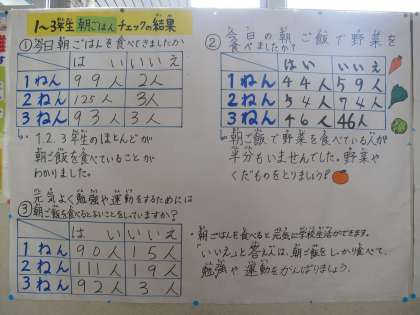 1~3年生 朝ごはんチェックの結果
①今日朝ごはんを食べてきましたか
はい いいえ
1ねん 99人 2人
2ねん 125人 3人
3ねん 93人 3人
1.2.3年生のほとんどが
朝ご飯を食べていることが
わかりました。
②今日の朝ご飯で野菜を
食べましたか?
はい いいえ
1ねん 44人 59人
2ねん 54人 74人
3ねん 46人 46人
朝ご飯で野菜を食べている人が
半分もいませんでした。野菜や
くだものをとりましょう!
元気よく勉強や運動をするためには
③朝ご飯を食べるとよいことをしていますか?
はい いいえ
1ねん 90人 15人
2ねん 111人 19人
3ねん 92人 3人
・朝ごはんを食べると元気に学校生活ができます。
「いいえ」と答えた人は、朝ご飯をしっかり食べて、
勉強や運動をがんばりましょう。